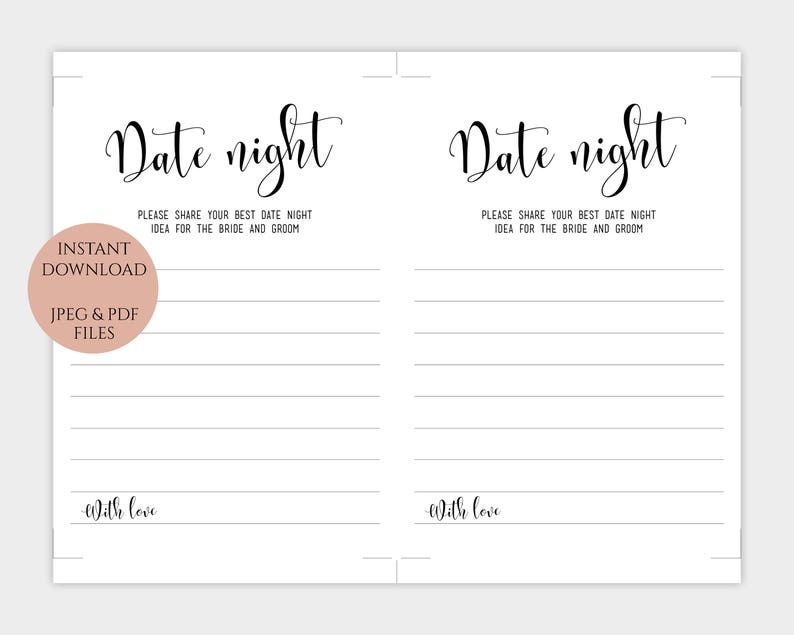 Date night
PLEASE SHARE YOUR BEST DATE NIGHT
IDEA FOR THE BRIDE AND GROOM
With love
Date night
PLEASE SHARE YOUR BEST DATE NIGHT
IDEA FOR THE BRIDE AND GROOM
With love
INSTANT
DOWNLOAD
JPEG & PDF
FILES